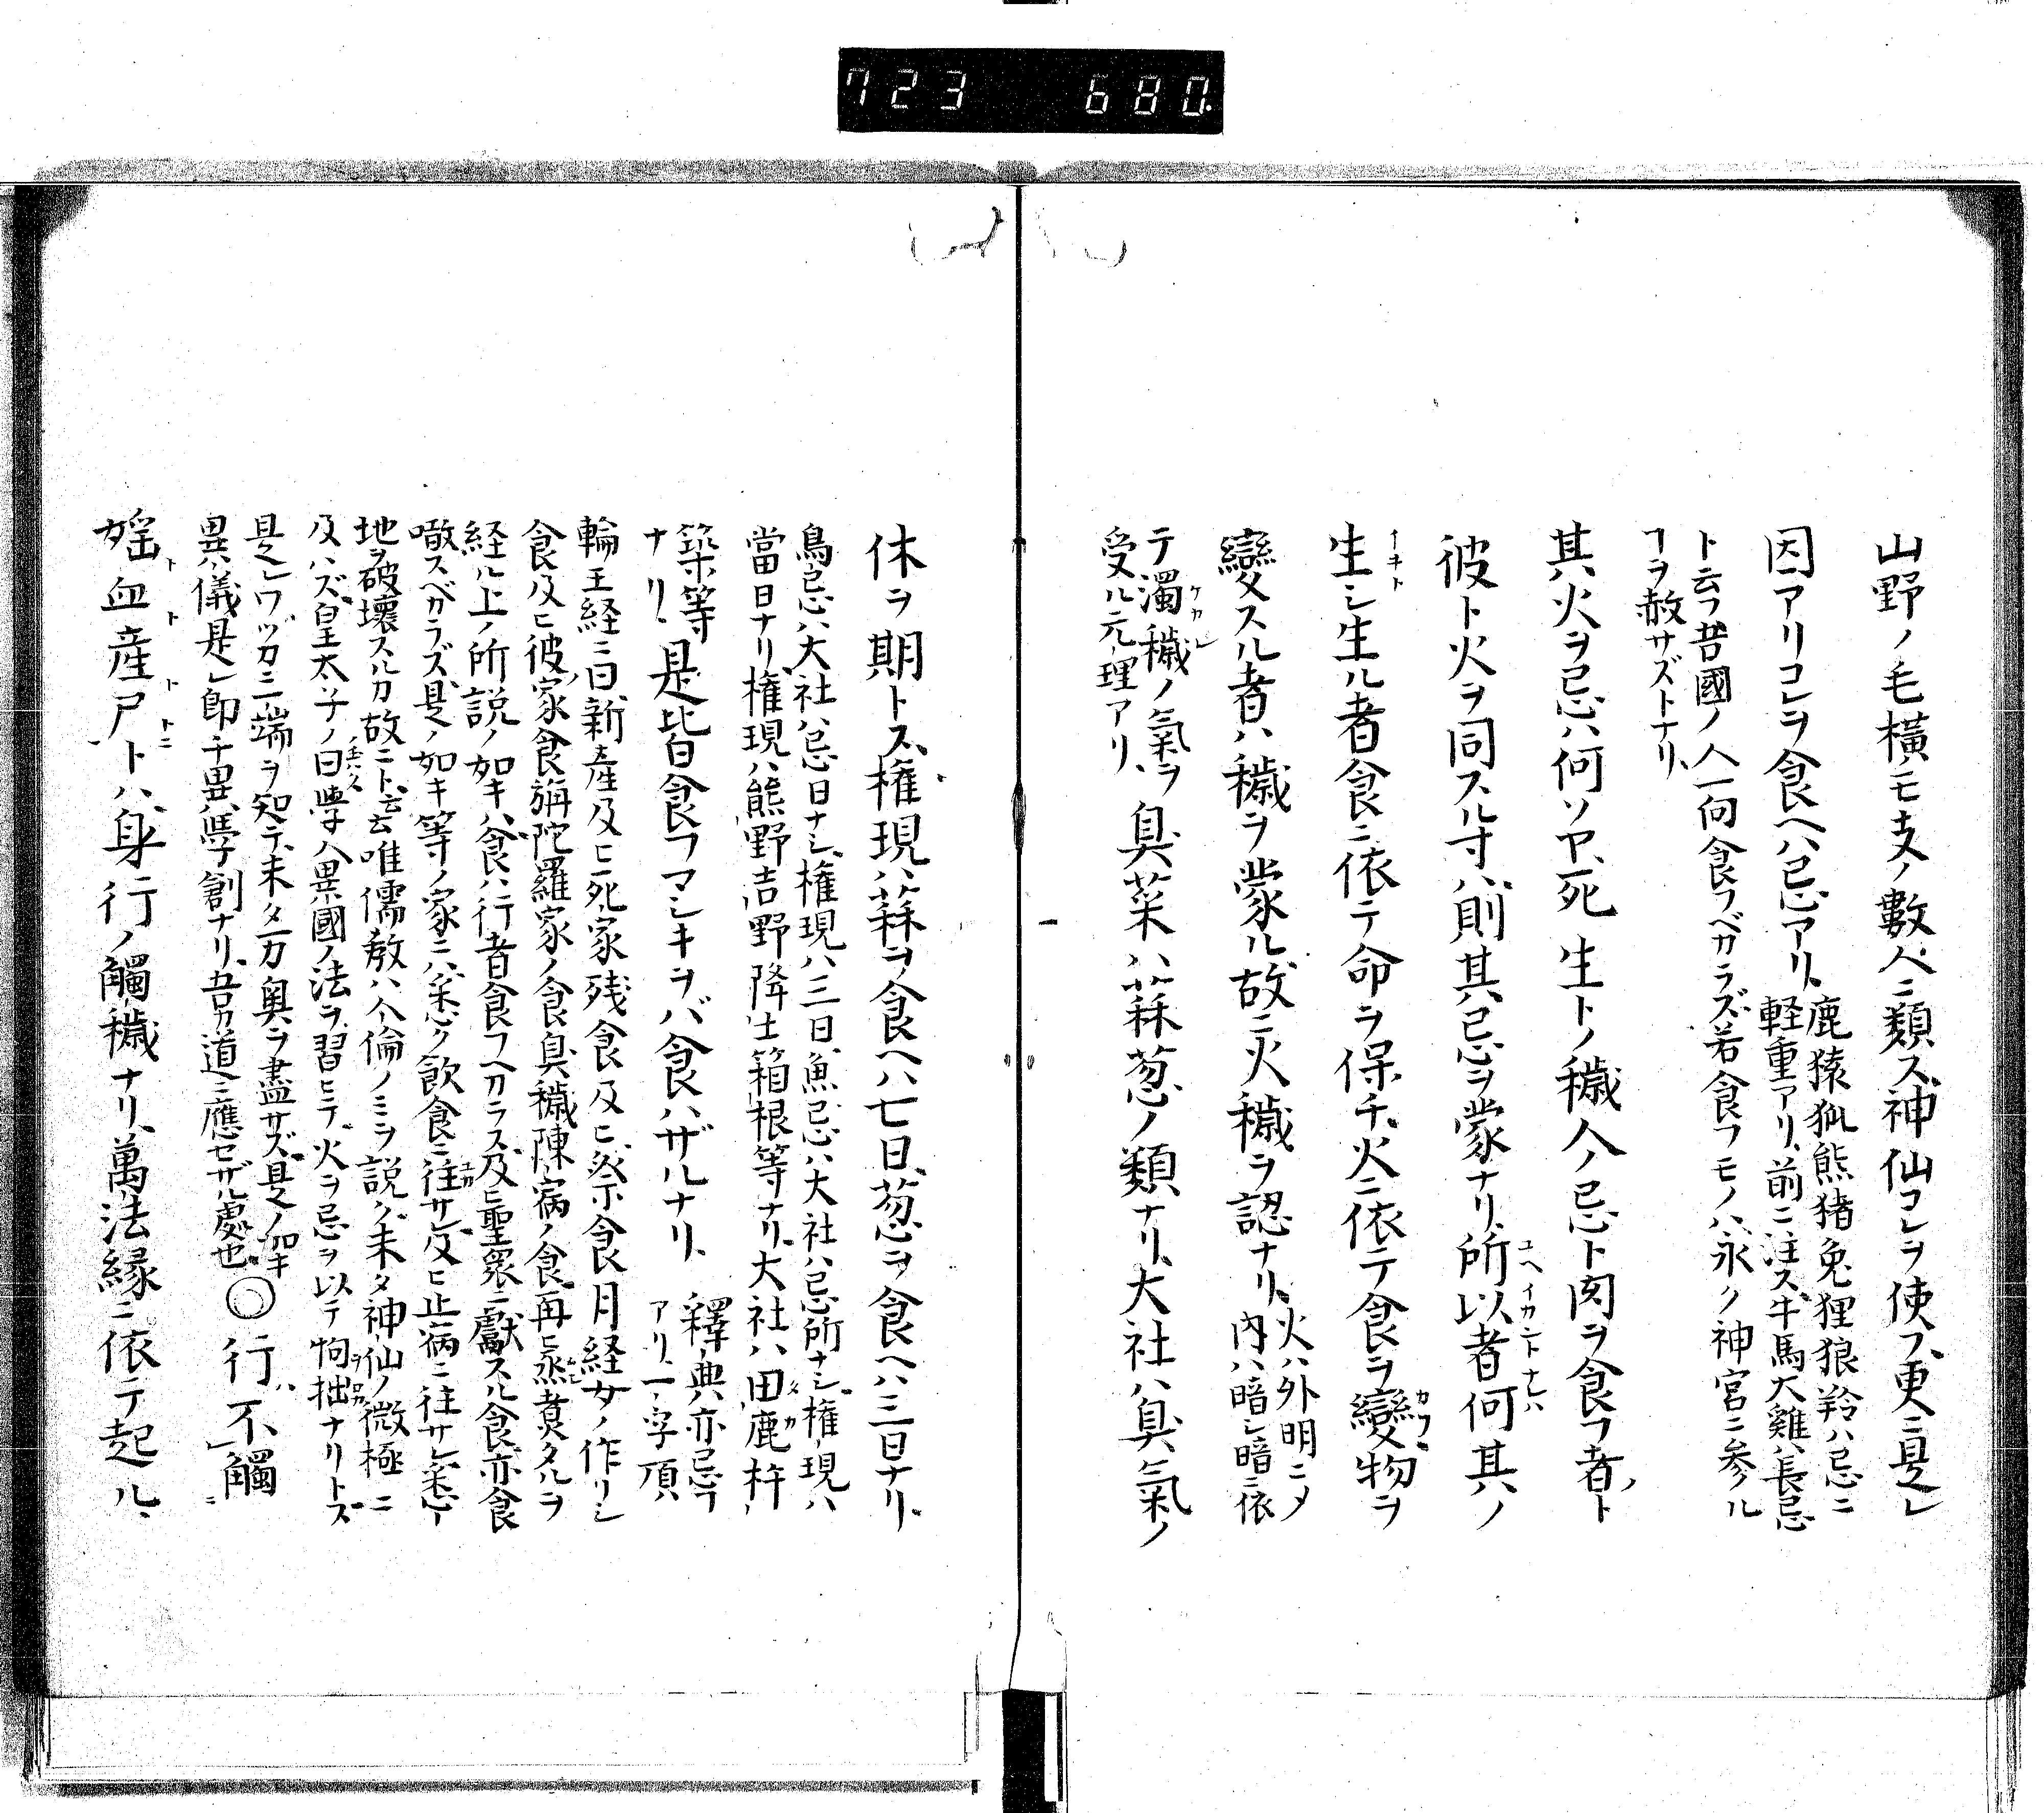 723 680.
山野ノ毛横モ支ノ數人ニ類ス神仙コレヲ使フ更ニ是レ
因アリコレヲ食ヘハ忌アリ
鹿猿狐熊猪兔狸狼羚ハ忌ニ
軽重アリ前ニ注ス牛馬犬雞ハ長忌
ト云フ昔國ノ人一向食フベカラズ若食フモノハ永ク神宮ニ参ル
ヿヲ赦サズトナリ
其火ヲ忌ハ何ソヤ死生トノ穢人ノ忌ト肉ヲ食フ者ト
彼ト火ヲ同スル寸ハ則其忌ヲ蒙ナリ所以者何其ノ
生シ生ル者食ニ依テ命ヲ保チ火ニ依テ食ヲ變物ヲ
變スル者ハ穢ヲ蒙ル故ニ火穢ヲ認ナリ
火ハ外明ニメ
内ハ暗シ暗ニ依
テ濁穢ノ氣ヲ
受ル元理アリ
臭菜ハ蒜葱ノ類ナリ大社ハ臭氣ノ
休ヲ期トス権現ハ蒜ヲ食ヘハ七日葱ヲ食ヘハ三日ナリ
鳥忌ハ大社ハ忌日ナシ権現ハ三日魚忌ハ大社ハ忌所ナシ権現ハ
當日ナリ権現ハ熊野吉野降士箱根等ナリ大社ハ田鹿杵
築等
ナリ
是皆食フマシキヲバ食ハザルナリ
釋典亦忌ヿ
アリ一字頂
輪王経ニ曰新産及ヒ死家残食及ヒ祭食月経女ノ作リシ
食及ヒ彼家食旃陀羅家ノ食臭穢陳病ノ食再ヒ烝煮タルヲ
経ル上ノ所説ノ如キハ食ハ行者食フヘカラス及ヒ聖衆ニ獻スル食亦食
噉スベカラズ是ノ如キ等ノ家ニハ悉ク飲食ニ往サレ及ヒ止病ニ往サレ悉ー
地ヲ破壊スルカ故ニト云云唯儒教ハ人倫ノミヲ説ク未タ神仙ノ微極ニ
及ハズ皇太子ノ曰學人異國ノ法ヲ習ヒテ火ヲ忌ヲ以テ拘拙ナリトス
是レワヅカニ端ヲ知テ未タ一カ奥ヲ盡サズ是ノ如キ
異儀是レ即チ異學創ナリ吾カ道ニ應セザル處也◯行不觸
婬血産尸トハ身行ノ觸穢ナリ萬法縁ニ依テ起ル